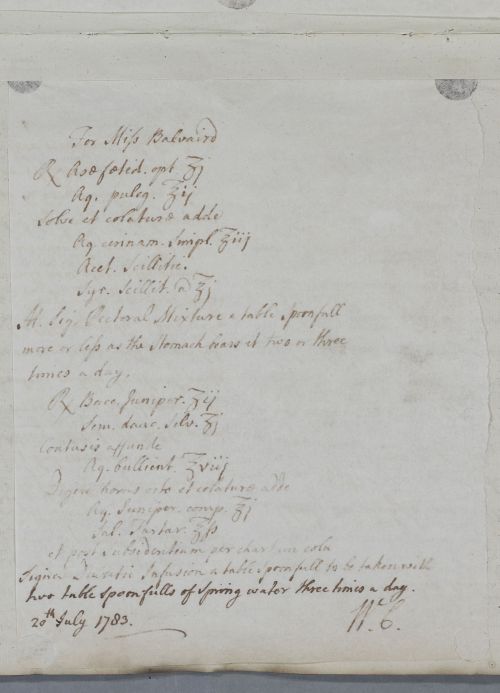 For Miſs Balvaird
℞ Asæfœtid. opt. ʒj
Aq. puleg. ℥ij
Solve et colaturæ adde
Aq. cinnam. Simpl. ℥iij
Acet. Scillitic.
Syr. Scillit. a ℥j
M. Sig. Pectoral Mixture a table Spoonfull
more or leſs as the Stomach bears it two or three
times a day.
℞ Bacc. Juniper. ℥ij
Sem. dauc. Silv. ℥j
Contusis affunde
Aq. bullient. ℥viij
Digere horas octo et colaturæ adde
Aq. Juniper. comp. ℥j
Sal. Tartar. ʒſs
et post Subsidentiam per chartam cola
Signa Diuretic Infusion a table Spoonfull to be taken with
two table Spoonfulls of Spring water three times a day.
20th July 1783. W. C.